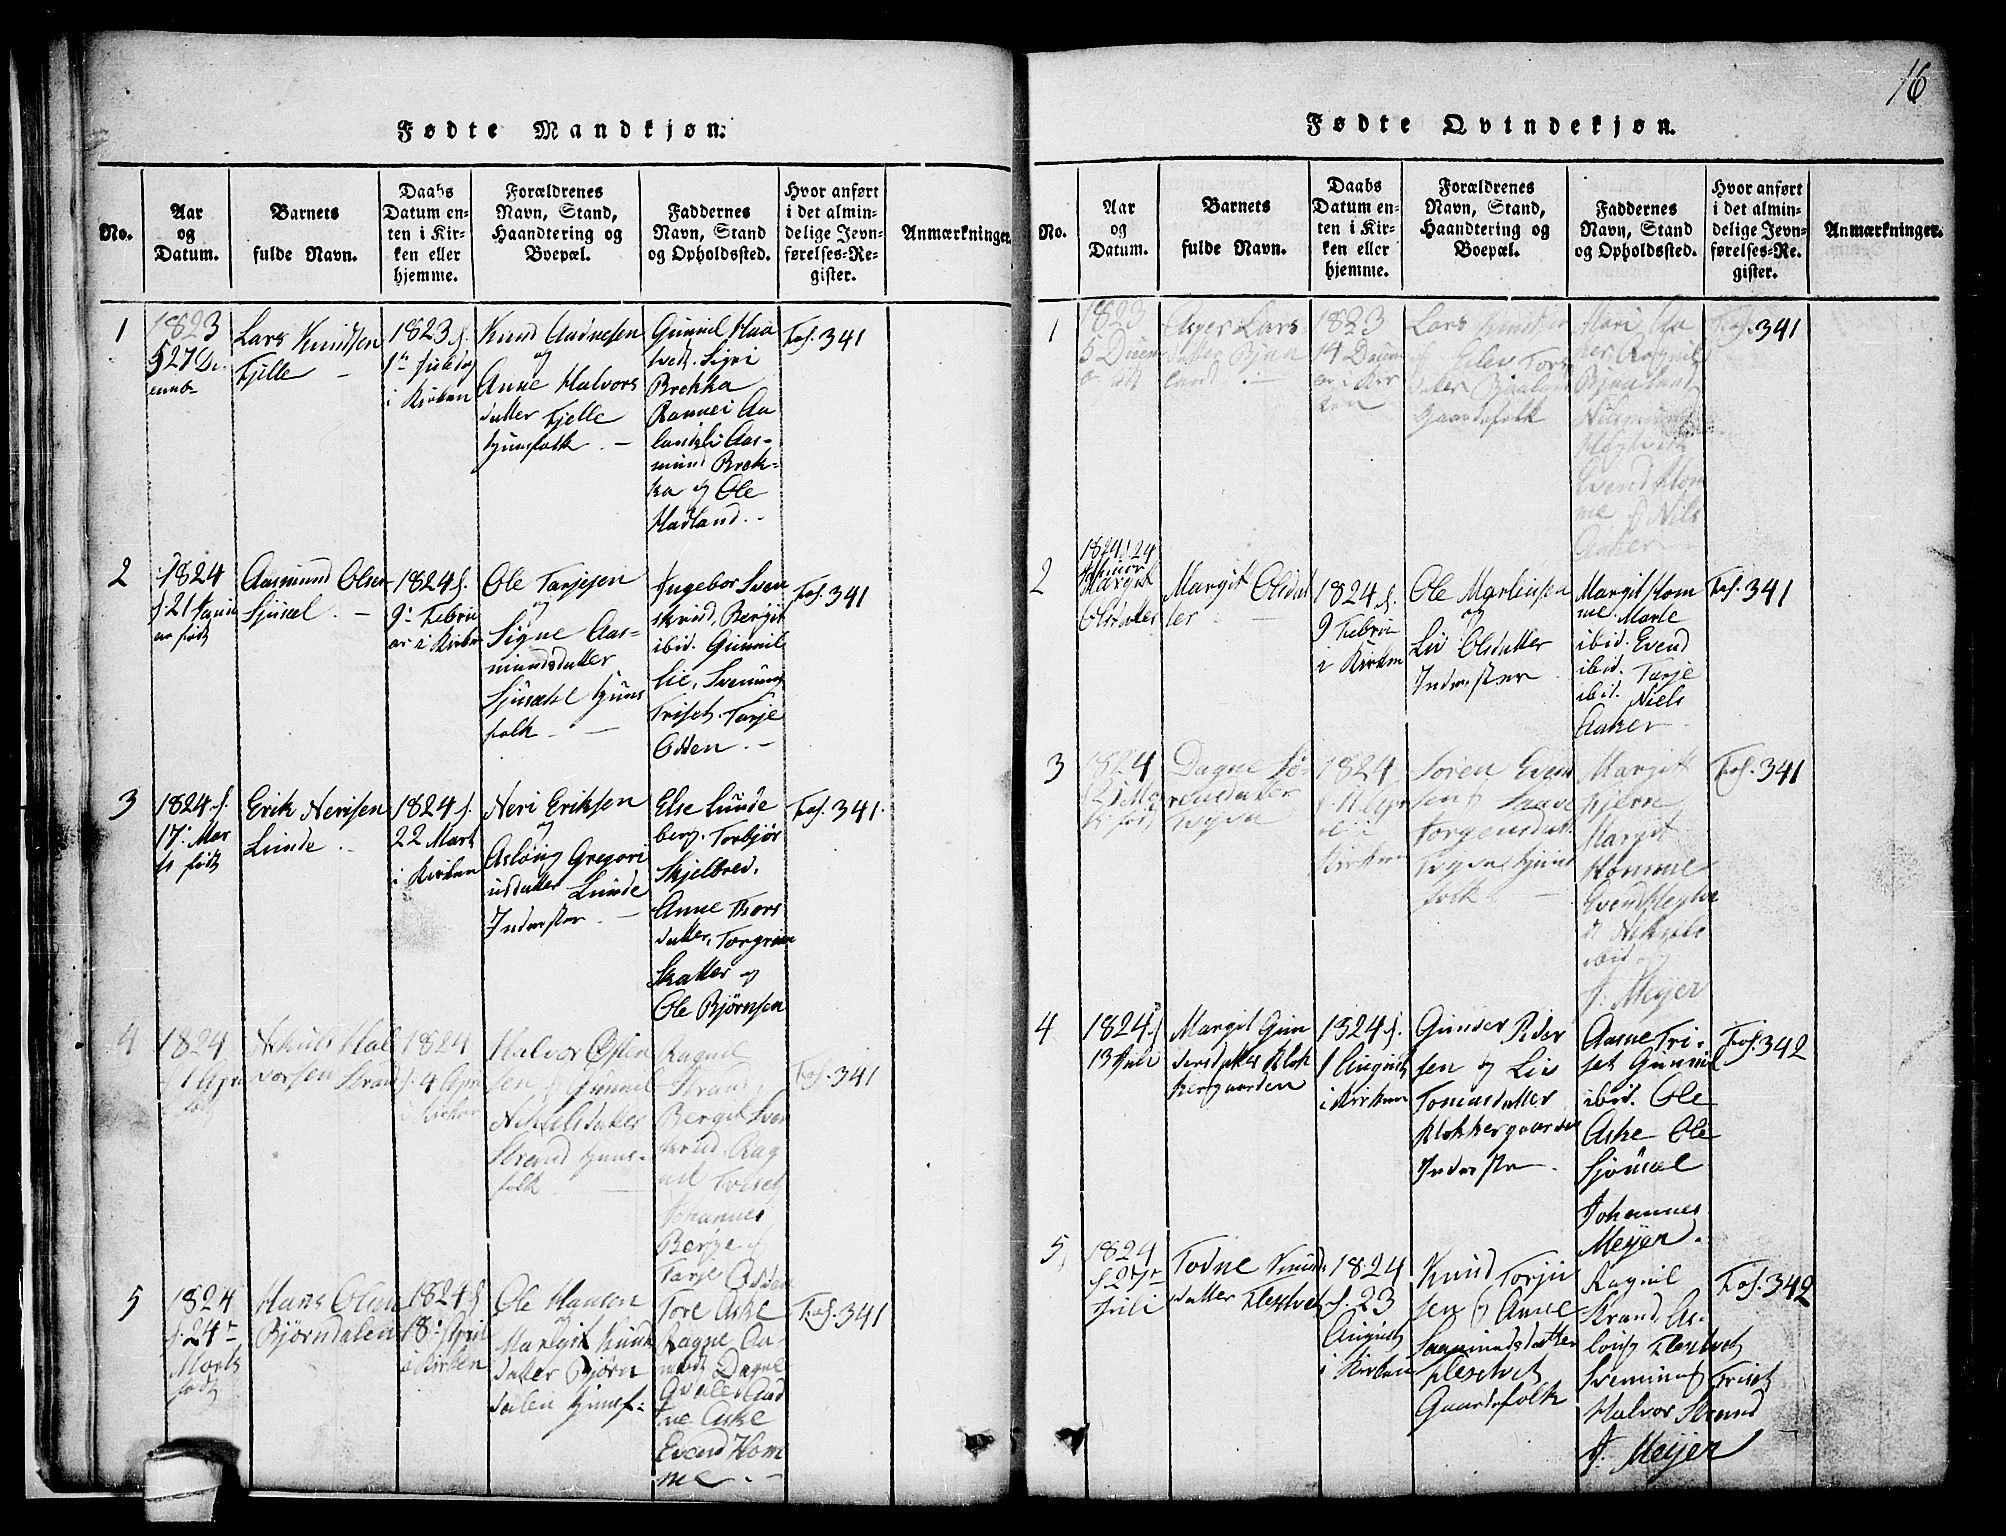 Fødte Mandkjøn.
No.
Aar
og
Datum.
Barnets
fulde Navn.
Daabs
Datum en-
ten i Kir-
ken eller
hjemme.
Forældrenes
Navn, Stand,
Haandtering og
Boepæl.
Faddernes
Navn, Stand
og Opholdssted.
Hvor anført
i det almin-
delige Jevn-
førelses-Re-
gister.
Anmærkninger.
1
1823
Lars Knudsen
Fjelle
1823 d.
i Kirken
Knud Aadnesen
og
Anne Halvors
datter Fjelle
Huusfolk
Gunnil Haa
tvedt. Sigri
Brekka
Rannei Aa
landsli Aas-
mund Brek-
ka og Ole
Hadland.
Fol. 341
2
1824
d. 21 Janu
ar født
Aasmund Olsen
Sjusæl
1824 d.
9 Febru
ar i Kirken
Ole Tarjesen
og
Signe Aas-
mundsdatter
Sjusæl Huus
folk
Ingebor Sven
skrud, Bergit
ibid. Gunnil
Lie, Svenung
Triset. Tarje
Odden.
Fol. 341
3
1824 d.
17 Mar
ts født
Erik Nerisen
Lunde
1824 d.
22 Marts
i Kirken
Neri Eriksen
og
Aslong Gregori
usdatter Lunde
Inderster
Else Lunde
berg. Torbjør
Skjelbred.
Anne Thors
datter, Torgrim
Skatter og
Ole Bjørnsen
Fol. 341.
4
1824
d. 1 Apri
født
Nikuls Hal
vorsen Strand
1824
d. 4 Apri
i Kirken
Halvor Østen
sen og Gunnil
Nikulsdatter
Strand Huus-
folk
Ragnil
Strand,
Bergit Sven
skrud. Rag
nil Triset
Johannes
Berge og
Tarje Odden
Fol. 341
5
1824
d. 24
Marts
født
Hans Olsen
Bjørndalen
1824 d.
18 April
i Kirken
Ole Hansen
og
Margit Knuds
datter Bjørn
dalen Huusf.
Tore Aske
Ragne Aa-
Dagne
Aske
Evend Hom
me.
Fol. 341
16
Fødte Qvindekjøn.
No.
Aar
og
Datum.
Barnets
fulde Navn.
Daabs
Datum en-
ten i Kir-
ken eller
hjemme.
Forældrenes
Navn, Stand,
Haandtering og
Boepæl.
Faddernes
Navn, Stand
og Opholdssted.
Hvor anført
i det almin-
delige Jevn-
førelses-Re-
gister.
Anmærkninger.
1
1823
Lars
datter
1823
14
Lars Knudsen
Tors
datter
Gaardefolk
Evend Hom
me og Nils
Aaker
Fol. 341
2
Margit
Olsdatter
Margit Olsdat
ter
1824 d.
9 Febru
i Kirken
Ole Martinsen
og
Liv Olsdatter
Inderster
Margit Hom
me. Marte
ibid. Evend
ibid. Tarje
ibid. Niels
Aaker
Fol. 341
3
1824
Dagne Sø
rensdatter
1824
i
Kirken
Søren Even
sen og
Jorgensdat.
Huus
folk
Margit
Bjerva
Margit
Homme
Evend
ibid og
J. Meyer
Fol. 341
4
1824 d.
13 Juli
Margit Gun
dersdatter Klok
kergaarden
1824 d.
1 August
i Kirken
Gunder Peder
sen og Liv
Tomasdatter
Klokkergaarden
Inderster
Aasne Tri-
set Gunnil
ibid. Ole
Aske Ole
Sjøusæl
Johannes
Meyer.
Fol. 342
5
1824
d. 27
Juli
Todne Knuds
datter Flestvet
1824
d. 23
August
i Kirken
Knud Torju
sen og Anne
Saamundsdatter
Flestvet
Gaardefolk
Ragnil
Strand. As-
loug Flestvet
Svenung Triset
Halvor Strand
J. Meyer
Fol. 342